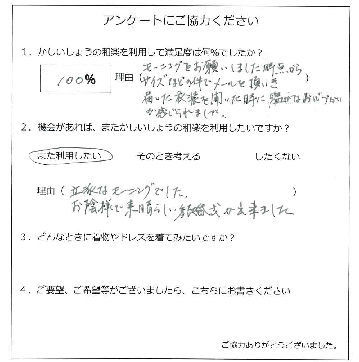 アンケートにご協力ください
1. かしいしょうの和楽を利用して満足度は何%でしたか？
100% 理由（モーニングをお願いしました時点から
サイズなどの件でメールを頂き
届いた衣装を開いた時に
が感じられました。）
2. 機会があれば、またかしいしょうの和楽を利用したいですか？
また利用したい そのとき考える したくない
理由（立派なモーニングでした。
お陰様で素晴らしい結婚式が出来ました）
3. どんなときに着物やドレスを着てみたいですか？
4. ご要望、ご希望等がございましたら、こちらにお書きください
ご協力ありがとうございました。